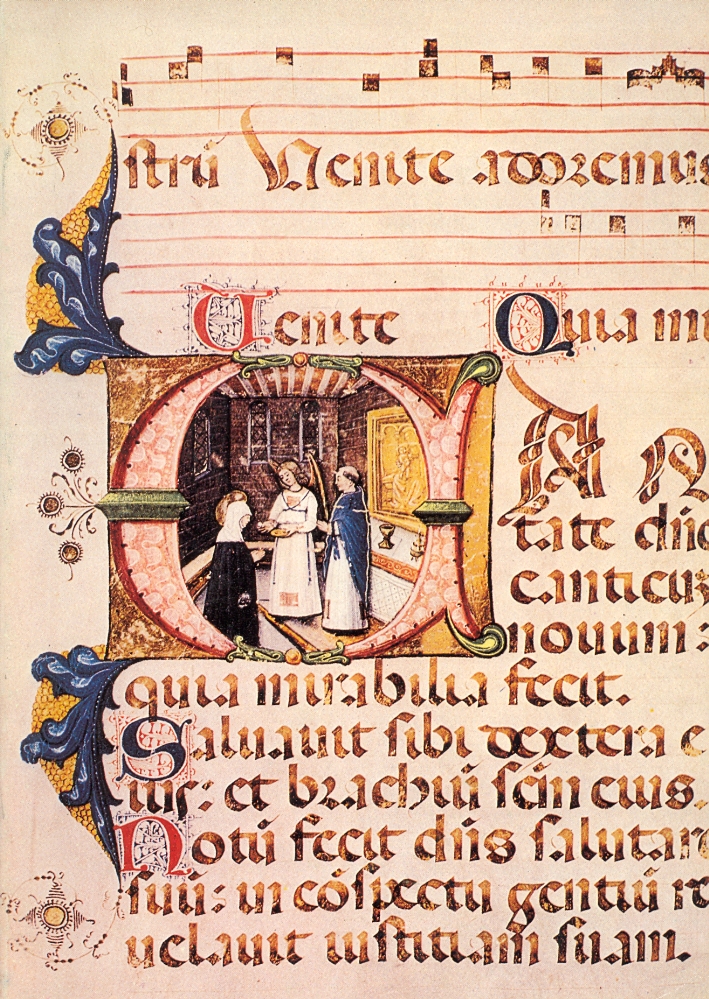 strū Venite adoremus
Venite Quia mi
CAN
tate dño
canticuz
nouum:
quia mirabilia fecit.
Saluauit sibi dextera e
ius: et brachiū scm̄ eius.
Notū fecit dn̄s salutare
suū: in cōspectu gentiū re
uelauit iustitiam suam.